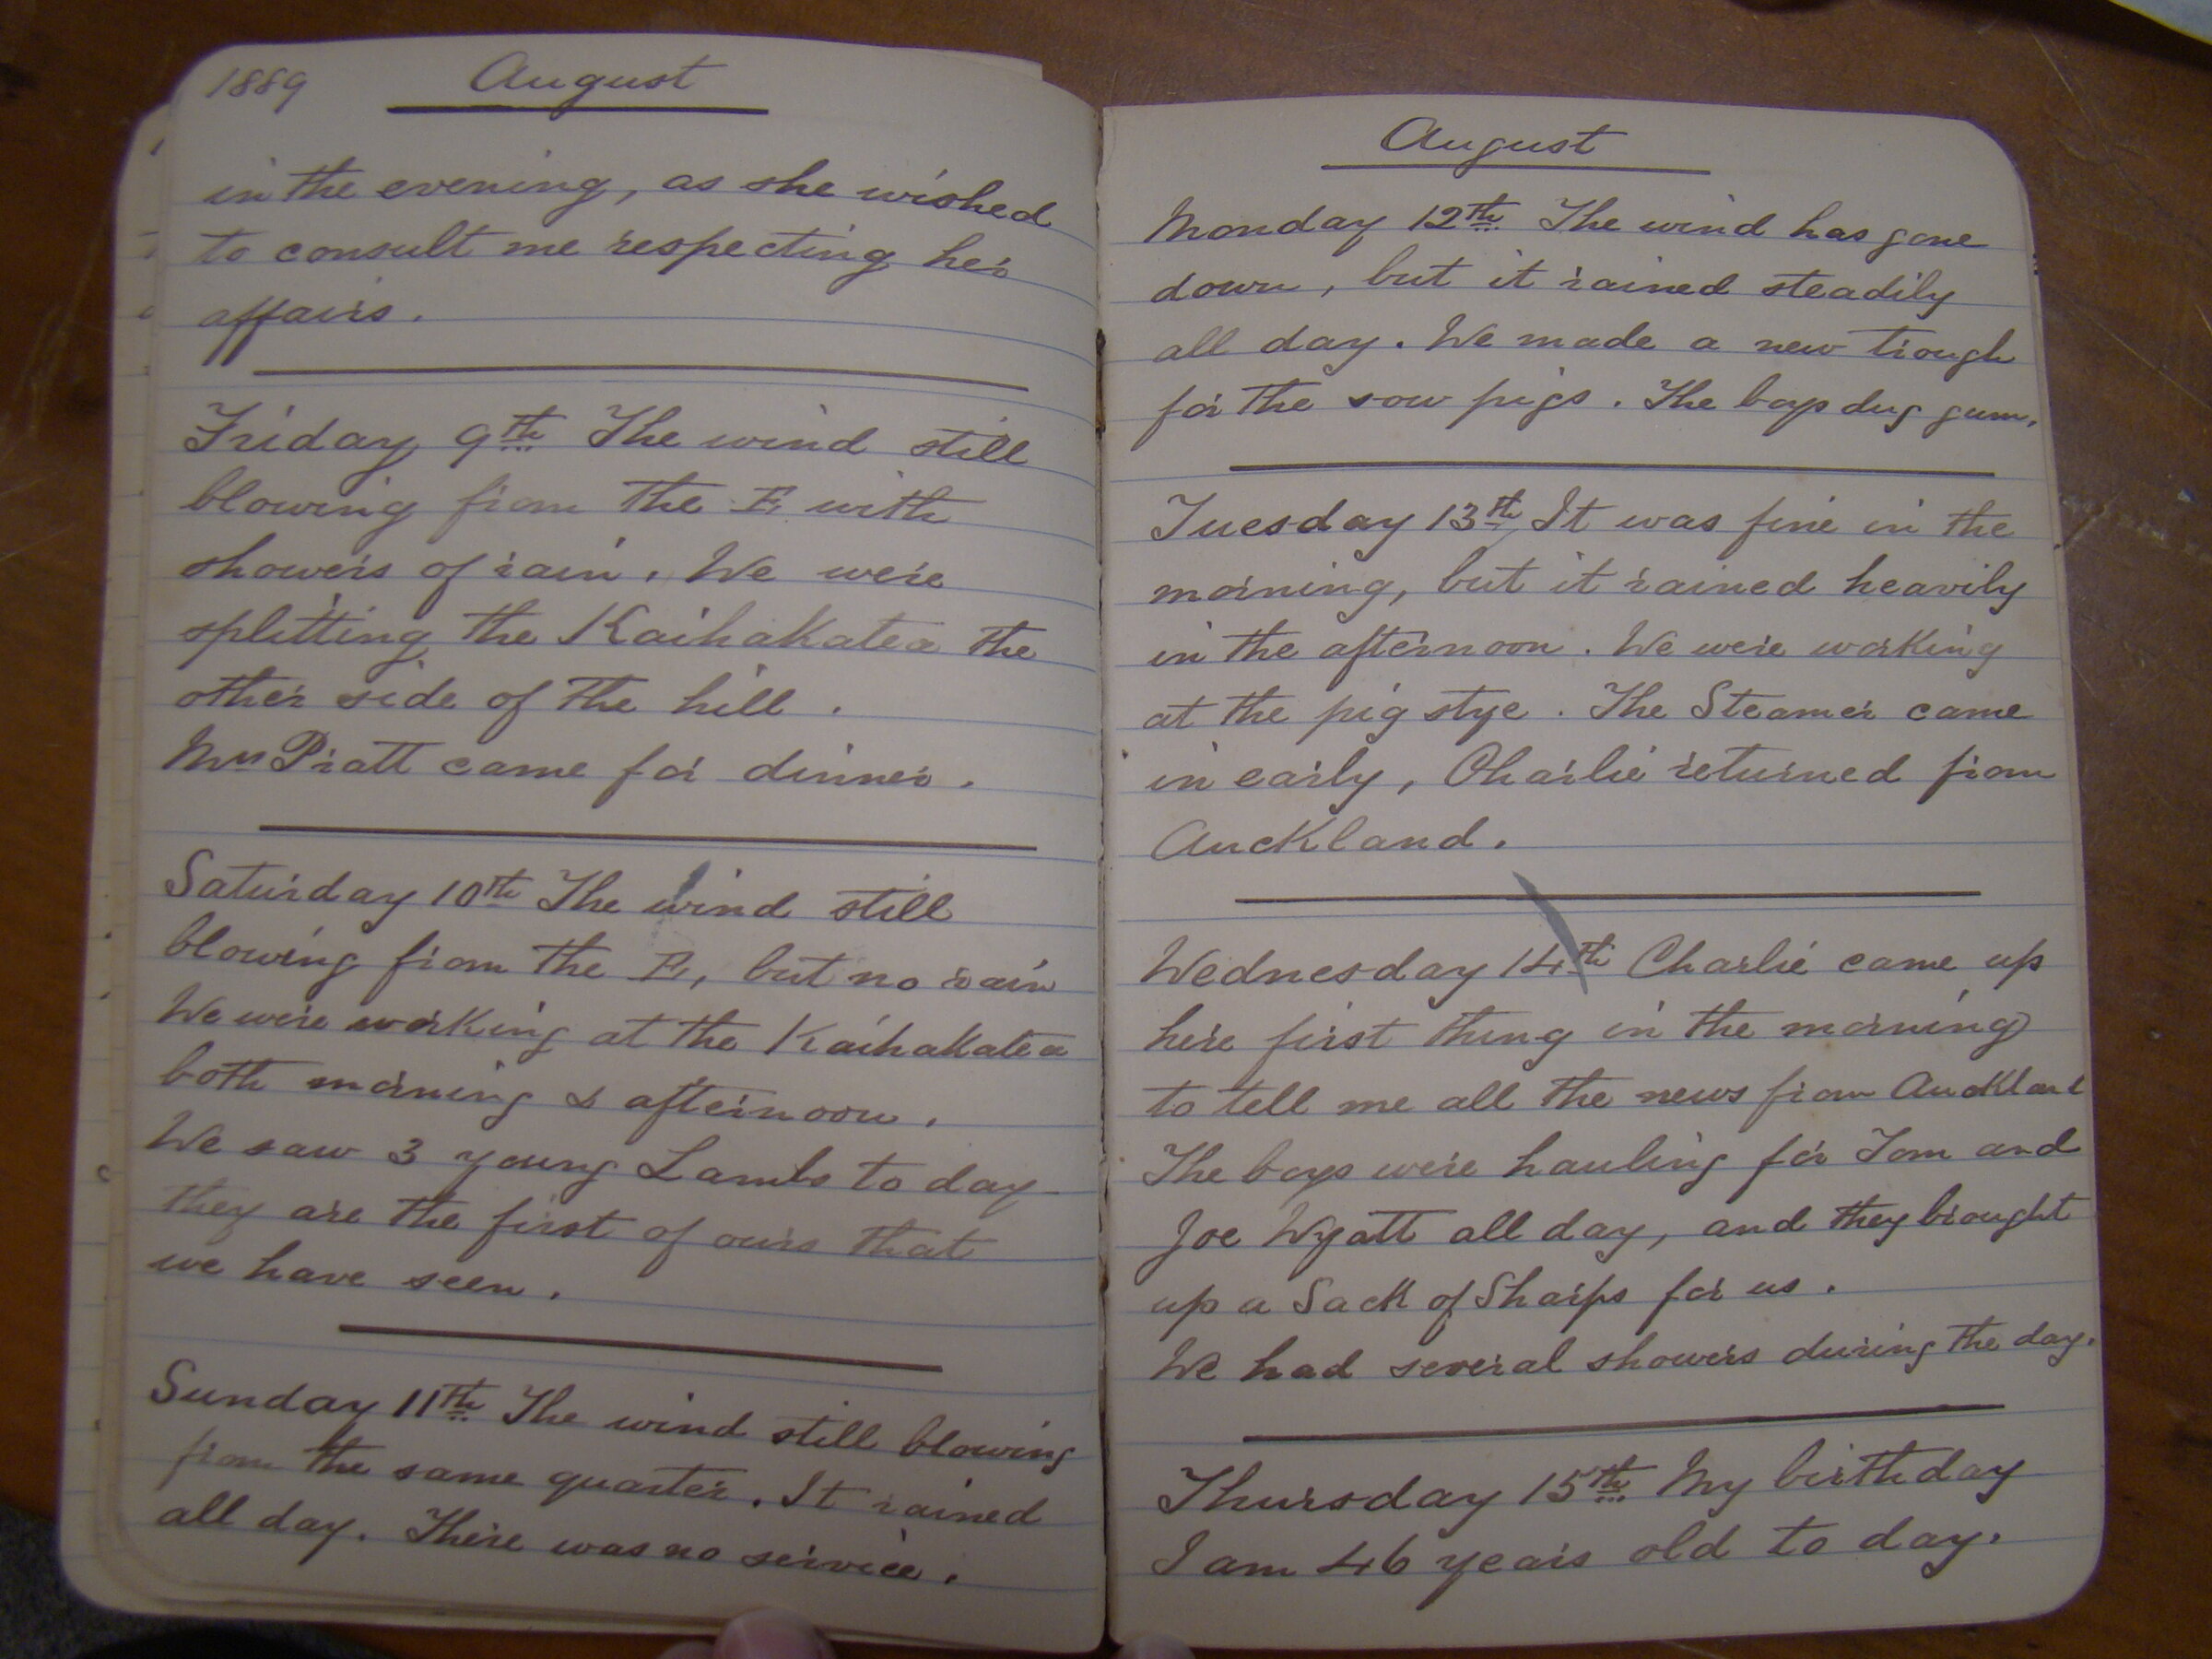 1889 August
in the evening, as she wished
to consult me respecting her
affairs.
Friday 9th The wind still
blowing from the E, with
showers of rain. We were
splitting the Kaihakatea the
other side of the hill.
Mrs Pratt came for dinner.
Saturday 10th The wind still
blowing from the E, but no rain
We were working at the Kaihakatea
both morning & afternoon.
We saw 3 young Lambs to day
they are the first of ours that
we have seen.
Sunday 11th The wind still blowing
from the same quarter. It rained
all day. There was no service.
August
Monday 12th The wind has gone
down, but it rained steadily
all day. We made a new trough
for the sow pigs. The boys dug gum.
Tuesday 13th It was fine in the
morning, but it rained heavily
in the afternoon. We were working
at the pig stye. The Steamer came
in early, Charlie returned from
Auckland.
Wednesday 14th Charlie came up
here first thing in the morning
to tell me all the news from Auckland
The boys were hauling for Tom and
Joe Wyatt all day, and they brought
up a Sack of Sharps for us.
We had several showers during the day.
Thursday 15th My birthday
I am 46 years old to day.